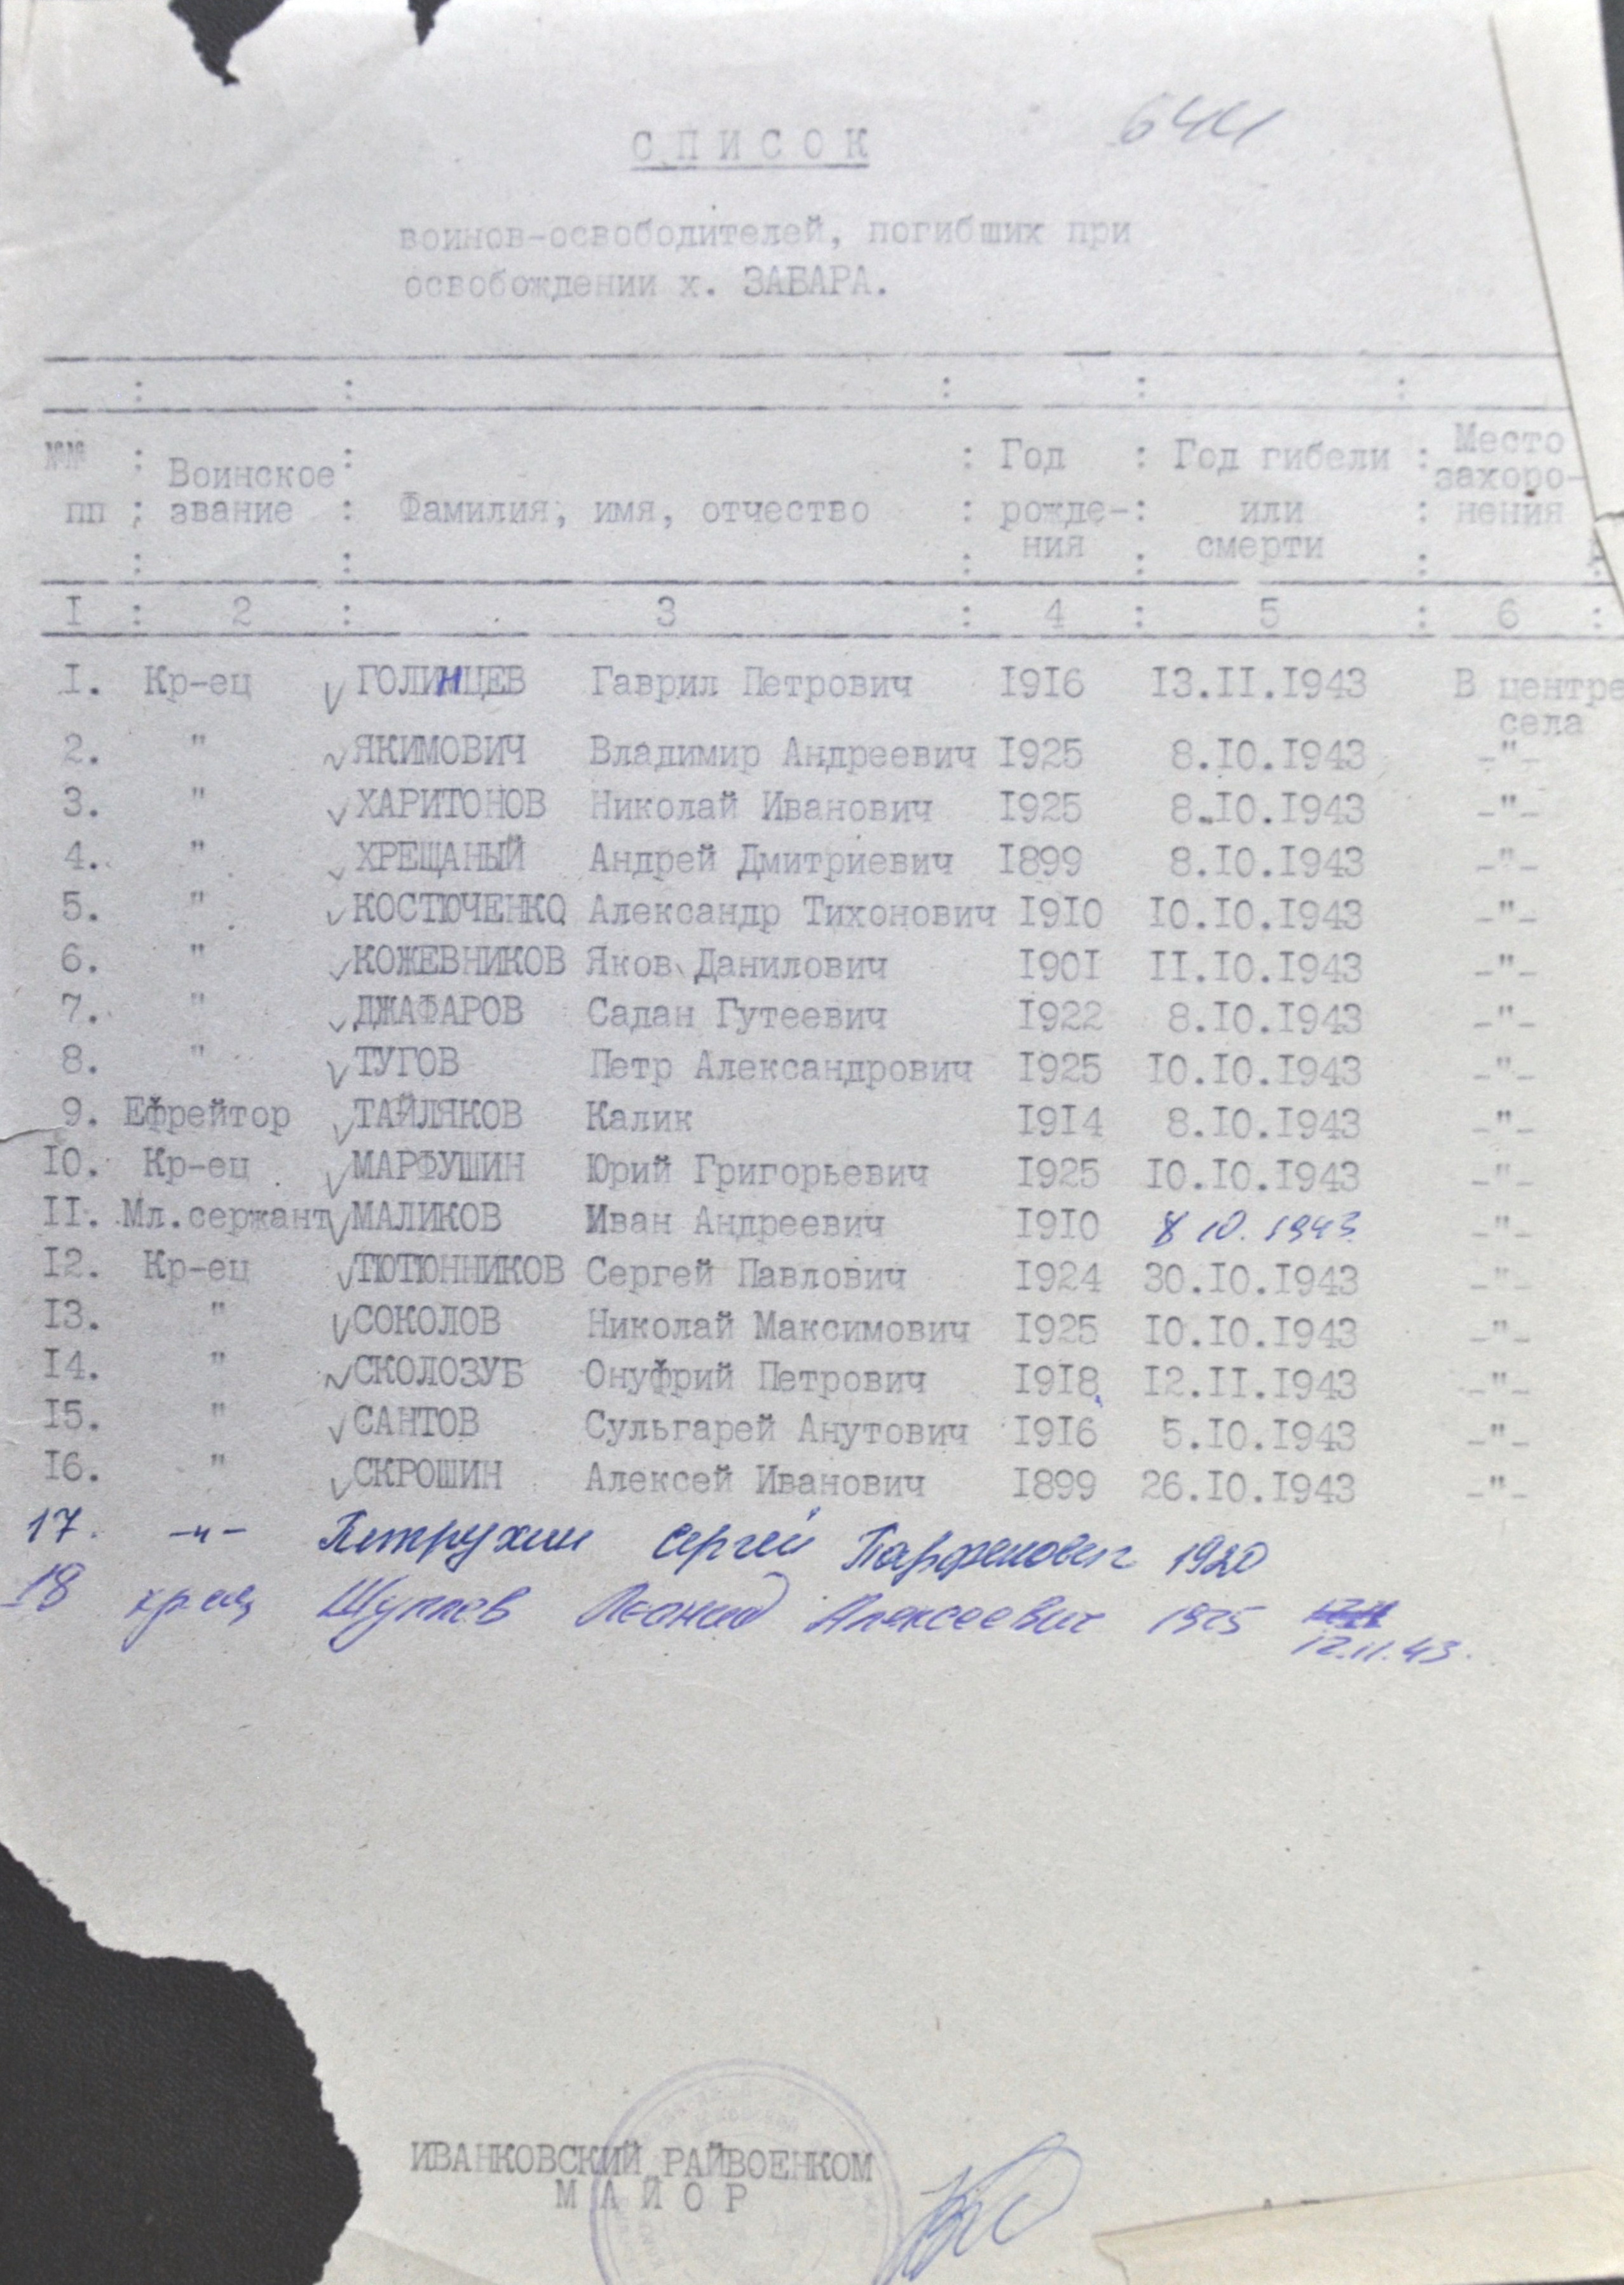 644
СПИСОК
воинов-освободителей, погибших при
освобождении х. ЗАБАРА.
№№ пп : Воинское звание : Фамилия, имя, отчество : Год рожде-ния : Год гибели или смерти : Место захоро-нения
I : 2 : 3 : 4 : 5 : 6 :
I. Кр-ец ГОЛИНЦЕВ Гаврил Петрович I9I6 I3.II.I943 В центре села
2. " ЯКИМОВИЧ Владимир Андреевич I925 8.I0.I943 -"-
3. " ХАРИТОНОВ Николай Иванович I925 8.I0.I943 -"-
4. " ХРЕЩАНЫЙ Андрей Дмитриевич I899 8.I0.I943 -"-
5. " КОСТЮЧЕНКО Александр Тихонович I9I0 I0.I0.I943 -"-
6. " КОЖЕВНИКОВ Яков Данилович I90I II.I0.I943 -"-
7. " ДЖАФАРОВ Садан Гутеевич I922 8.I0.I943 -"-
8. " ТУГОВ Петр Александрович I925 I0.I0.I943 -"-
9. Ефрейтор ТАЙЛЯКОВ Калик I9I4 8.I0.I943 -"-
I0. Кр-ец МАРФУШИН Юрий Григорьевич I925 I0.I0.I943 -"-
II. Мл.сержант МАЛИКОВ Иван Андреевич I9I0 8 10. 1943 -"-
I2. Кр-ец ТЮТЮННИКОВ Сергей Павлович I924 30.I0.I943 -"-
I3. " СОКОЛОВ Николай Максимович I925 I0.I0.I943 -"-
I4. " СКОЛОЗУБ Онуфрий Петрович I9I8 I2.II.I943 -"-
I5. " САНТОВ Сульгарей Анутович I9I6 5.I0.I943 -"-
I6. " СКРОШИН Алексей Иванович I899 26.I0.I943 -"-
17. -"- Петрухин Сергей Парфенович 1920
18 кр-ец Леонид Алексеевич 1925
12.11.43.
ИВАНКОВСКИЙ РАЙВОЕНКОМ
МАЙОР